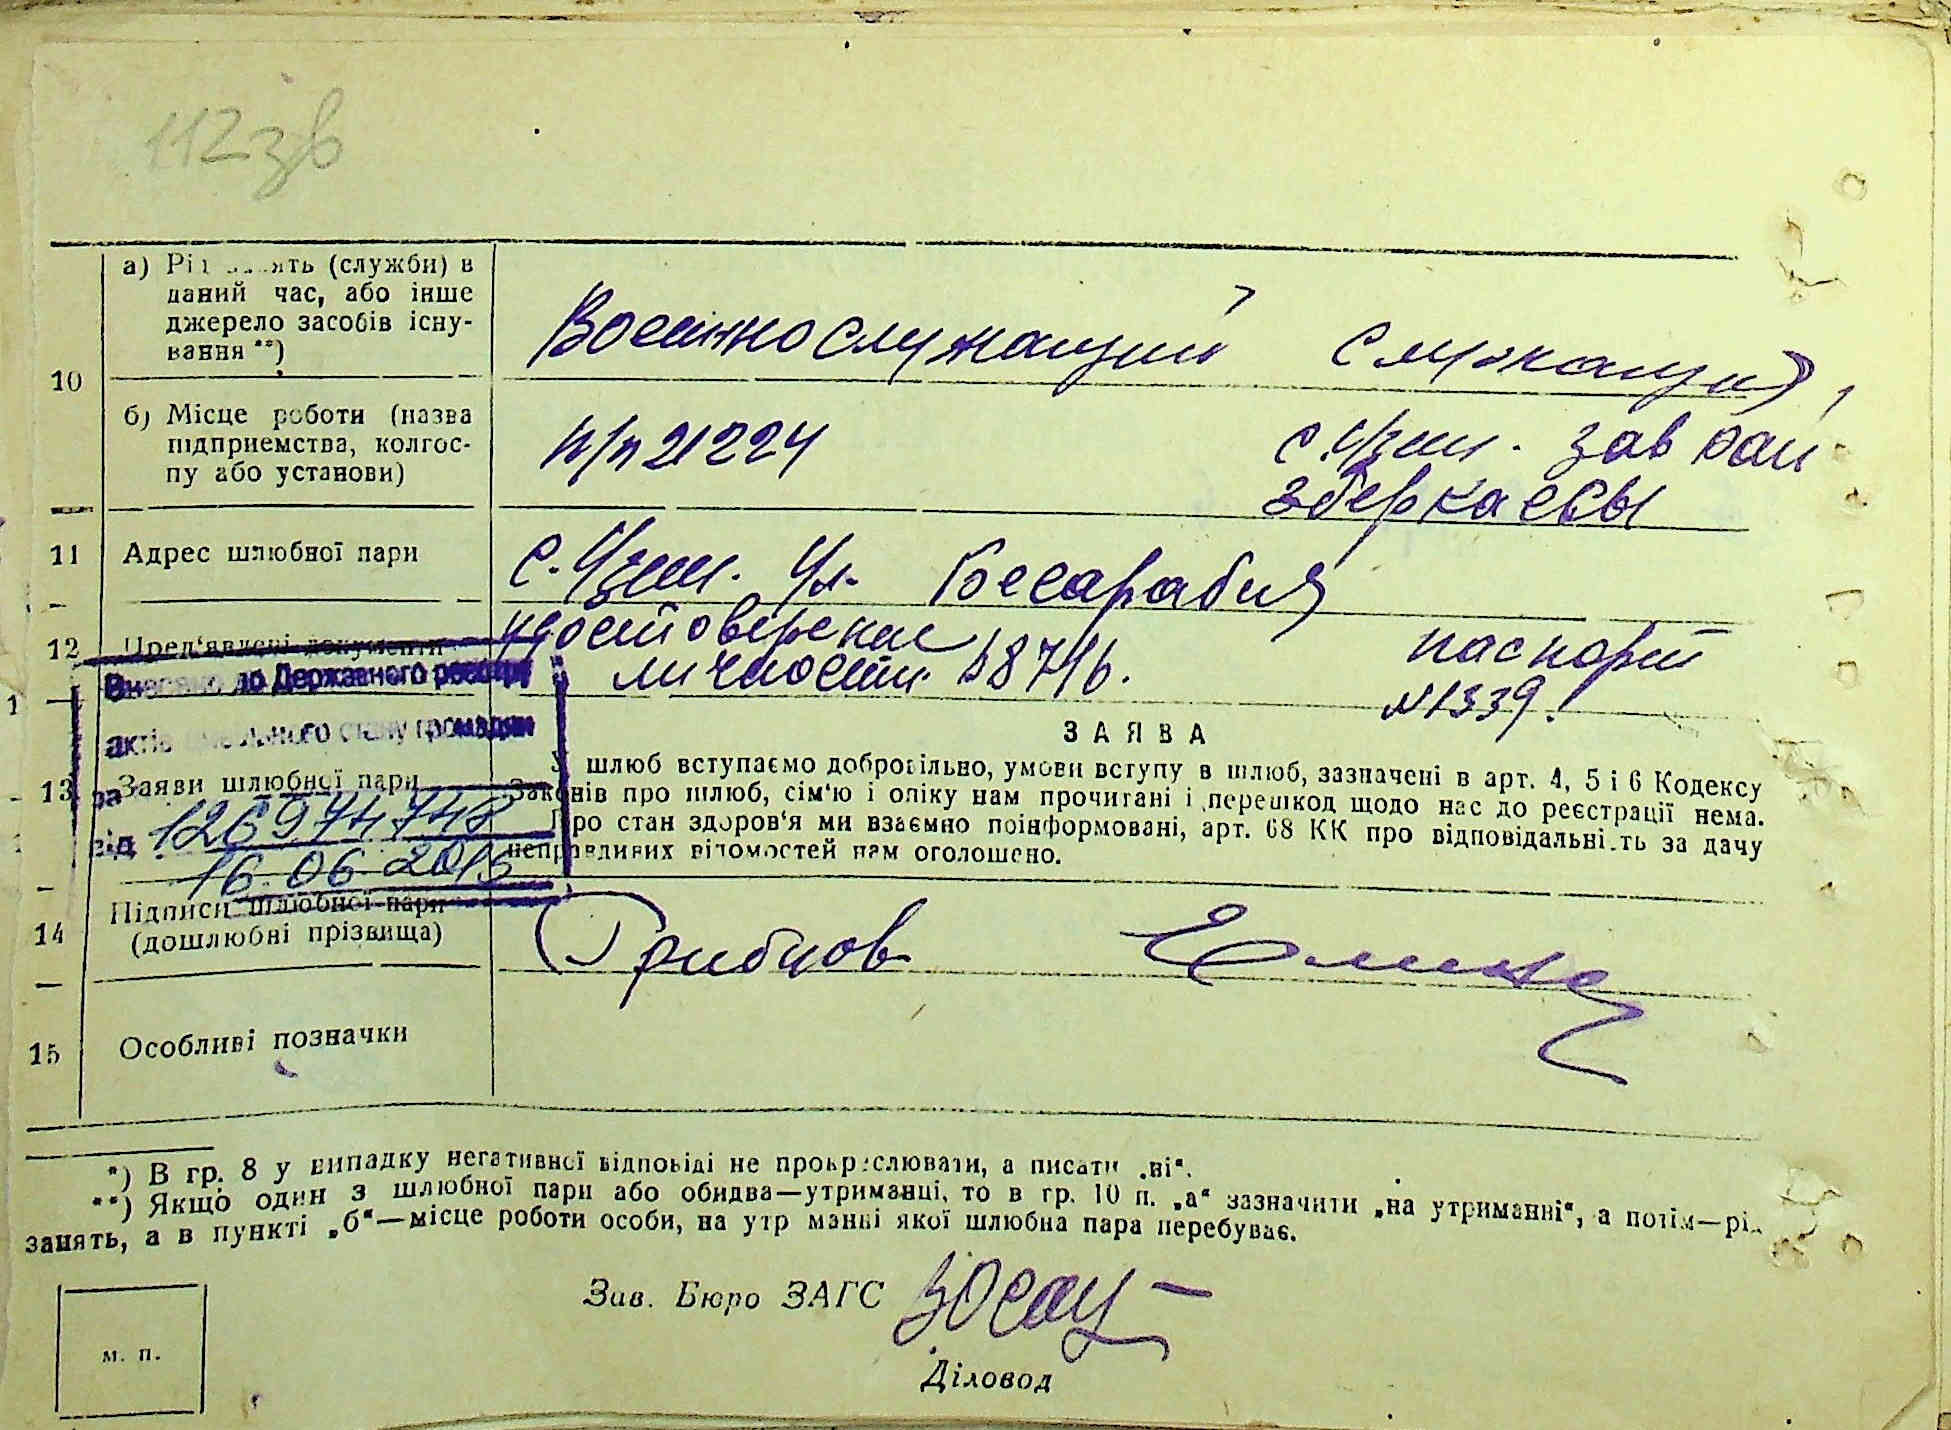 112зв
а) Рід занять (служби) в
даний час, або інше
джерело засобів існу-
вання **)
Военнослужащий служащий,
10
б) Місце роботи (назва
підприємства, колгос-
пу або установи)
п/п 21224
с. Узин. зав рай
зберкассы
11 Адрес шлюбної пари
с. Узин. Ул. Бесарабия
12 Пред'явлені документи
удостоверение
личности
паспорт
N 1339.
Внесено до Державного реєстру
актів цивільного стану громадян
за 126974748
від 16.06.2016
ЗАЯВА
13 Заяви шлюбної пари
У шлюб вступаємо добровільно, умови вступу в шлюб, зазначені в арт. 4, 5 і 6 Кодексу
Законів про шлюб, сім'ю і опіку нам прочитані і перешкод щодо нас до реєстрації нема.
Про стан здоров'я ми взаємно поінформовані, арт. 68 КК про відповідальність за дачу
неправдивих відомостей нам оголошено.
14 Підписи шлюбної пари
(дошлюбні прізвища)
Грибцов
15 Особливі позначки
*) В гр. 8 у випадку негативної відповіді не прокреслювати, а писати „ні“.
**) Якщо один з шлюбної пари або обидва—утриманці, то в гр. 10 п. „а“ зазначити „на утриманні“, а потім—рід
занять, а в пункті „б“—місце роботи особи, на утриманні якої шлюбна пара перебуває.
Зав. Бюро ЗАГС
м. п.
Діловод